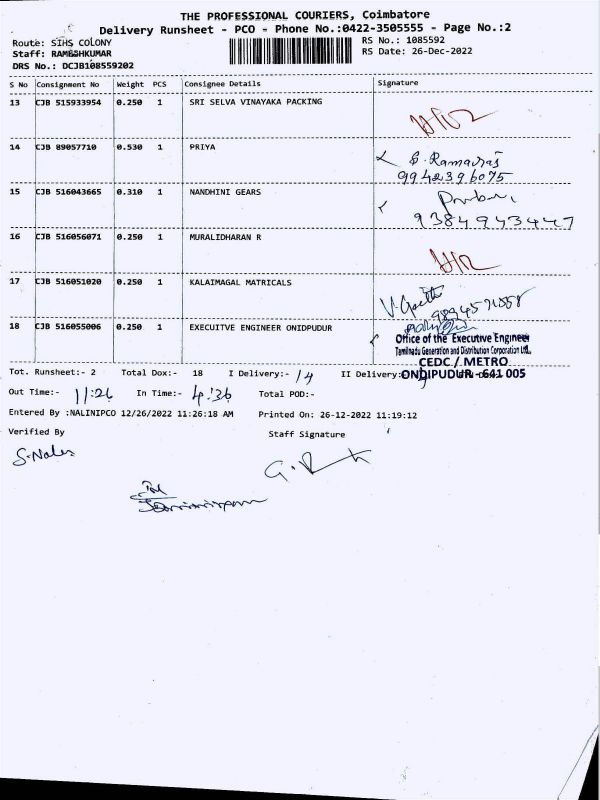 THE PROFESSIONAL COURIERS, Coimbatore
Delivery Runsheet - PCO - Phone No.:0422-3505555 - Page No.:2
Route: SIHS COLONY
RS No.: 1085592
Staff: RAMESHKUMAR
RS Date: 26-Dec-2022
DRS No.: DCJB108559202
S No Consignment No Weight PCS Consignee Details Signature
13 CJB 515933954 0.250 1 SRI SELVA VINAYAKA PACKING
14 CJB 89057710 0.530 1 PRIYA
9942396075
15 CJB 516043665 0.310 1 NANDHINI GEARS
9384943447
16 CJB 516056071 0.250 1 MURALIDHARAN R
17 CJB 516051020 0.250 1 KALAIMAGAL MATRICALS
18 CJB 516055006 0.250 1 EXECUITVE ENGINEER ONIDPUDUR
Office of the Executive Engineer
Tamilnadu Generation and Distribution Corporation Ltd.,
CEDC / METRO
ONDIPUDUR - 641 005
Tot. Runsheet:- 2 Total Dox:- 18 I Delivery:- 14 II Delivery:
Out Time:- 11:26 In Time:- 4:36 Total POD:-
Entered By :NALINIPCO 12/26/2022 11:26:18 AM Printed On: 26-12-2022 11:19:12
Verified By Staff Signature